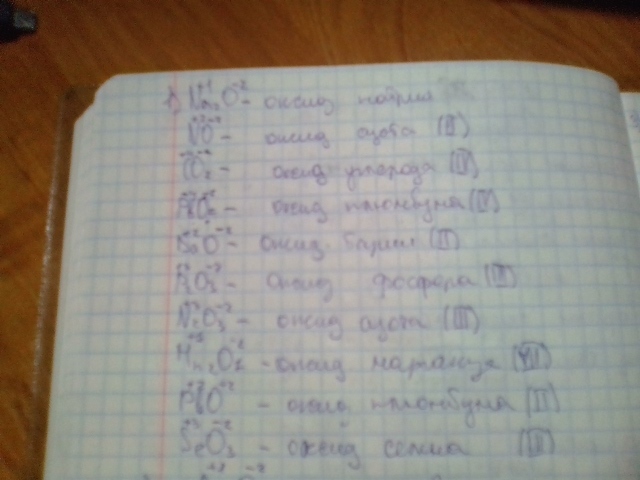 1) Na₂O - оксид натрия
NO - оксид азота (II)
CO₂ - оксид углерода (IV)
PbO₂ - оксид плюмбума (IV)
BaO - оксид бария (II)
P₂O₃ - оксид фосфора (III)
N₂O₃ - оксид азота (III)
Mn₂O₇ - оксид марганца (VII)
PbO - оксид плюмбума (II)
O₃ - оксид